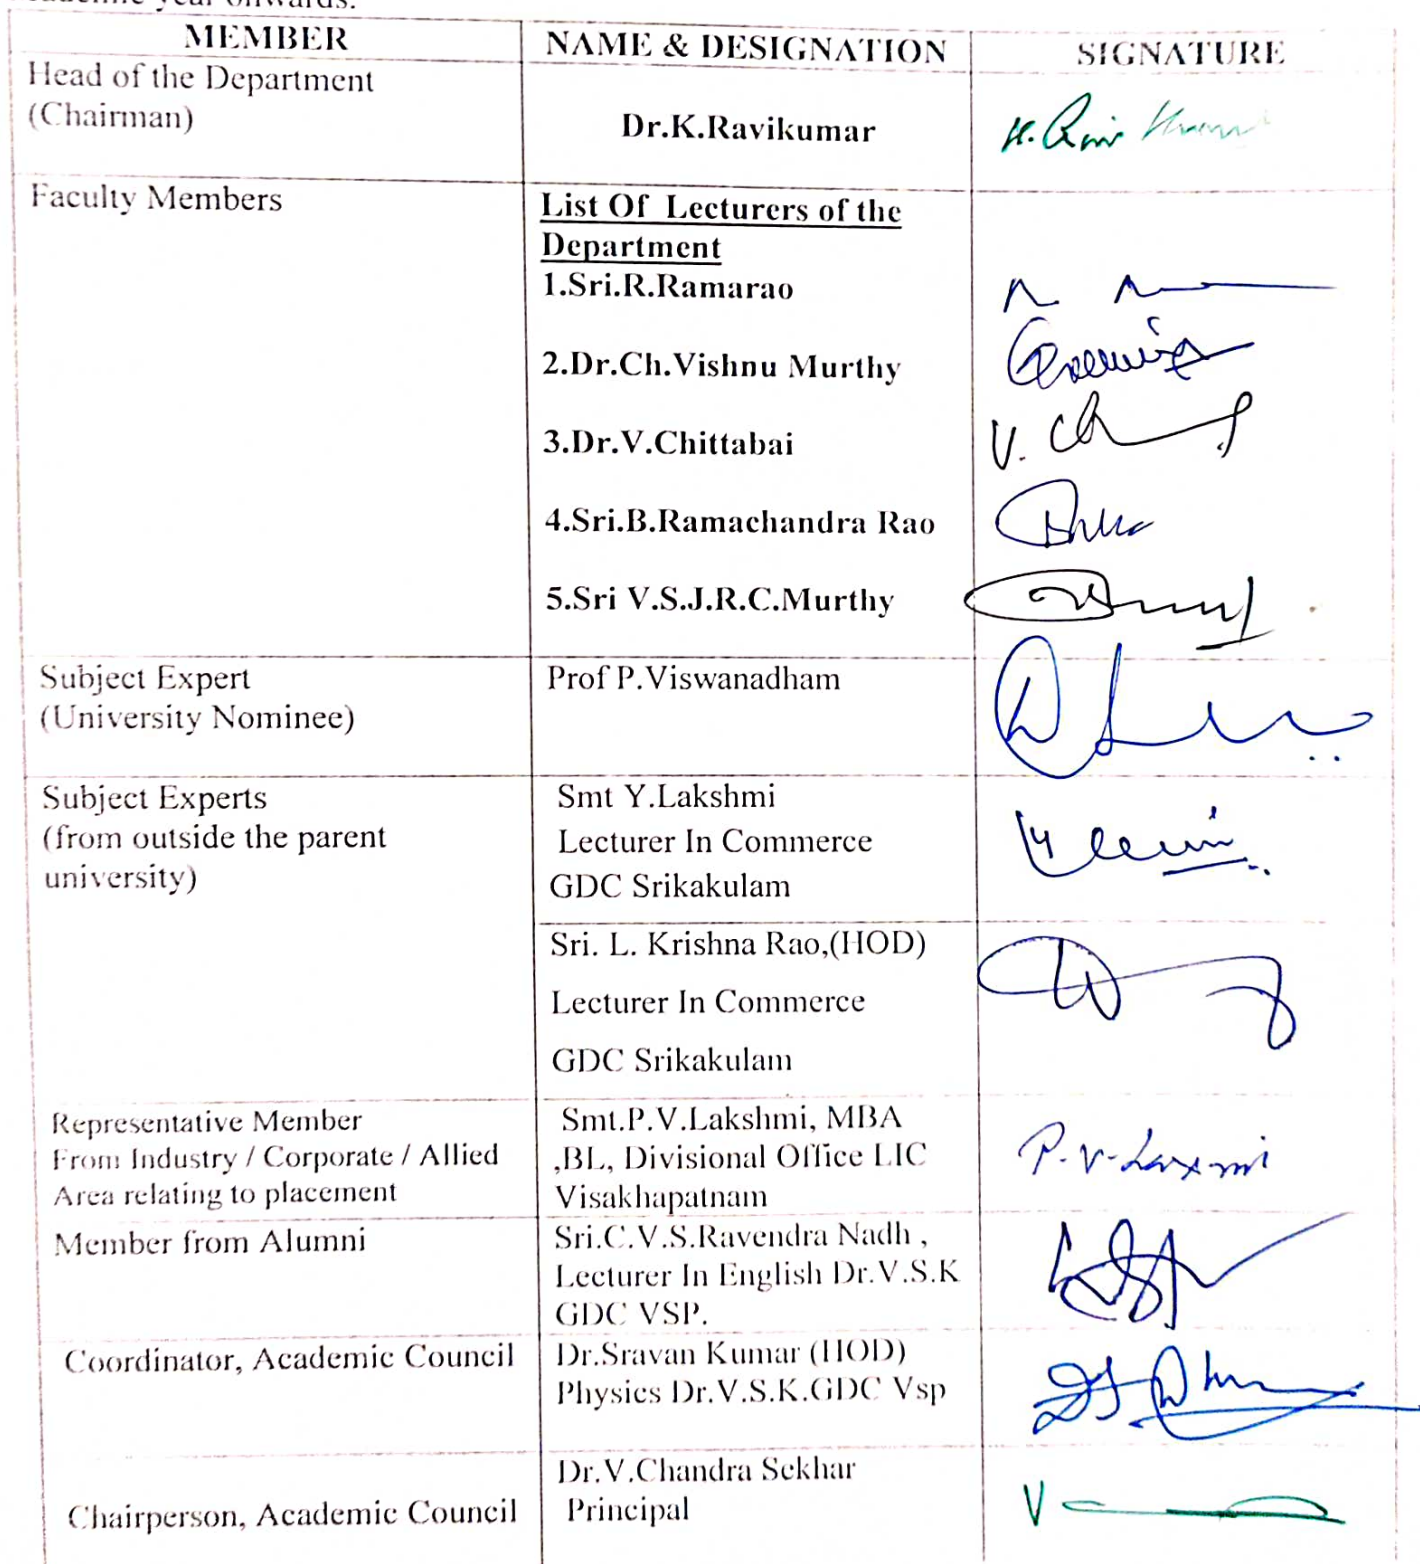 MEMBER NAME & DESIGNATION SIGNATURE
Head of the Department
(Chairman)
Dr.K.Ravikumar
Faculty Members
List Of Lecturers of the
Department
1.Sri.R.Ramarao
2.Dr.Ch.Vishnu Murthy
3.Dr.V.Chittabai
V. Ch
4.Sri.B.Ramachandra Rao
5.Sri V.S.J.R.C.Murthy
Subject Expert
(University Nominee)
Prof P.Viswanadham
Subject Experts
(from outside the parent
university)
Smt Y.Lakshmi
Lecturer In Commerce
GDC Srikakulam
Sri. L. Krishna Rao,(HOD)
Lecturer In Commerce
GDC Srikakulam
Representative Member
From Industry / Corporate / Allied
Area relating to placement
Smt.P.V.Lakshmi, MBA
,BL, Divisional Office LIC
Visakhapatnam
P.V.Laxmi
Member from Alumni
Sri.C.V.S.Ravendra Nadh ,
Lecturer In English Dr.V.S.K
GDC VSP.
Coordinator, Academic Council
Dr.Sravan Kumar (HOD)
Physics Dr.V.S.K.GDC Vsp
Chairperson, Academic Council
Dr.V.Chandra Sekhar
Principal